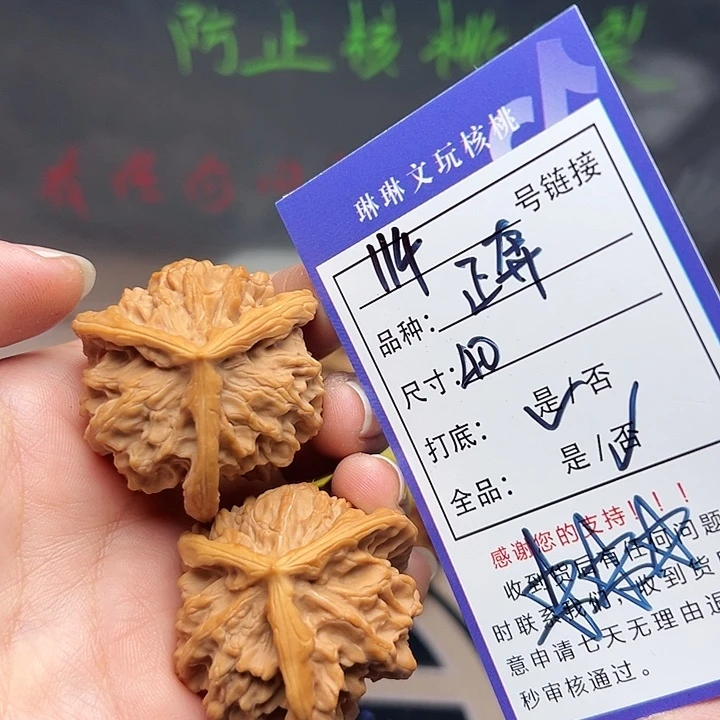 防止核桃裂
琳琳文玩核桃
114 号链接
品种：正弄
尺寸：40
打底： 是/否
全品： 是/否
感谢您的支持！！！
收到货后有任何问题
时联系我们，收到货
意申请七天无理由退
秒审核通过。